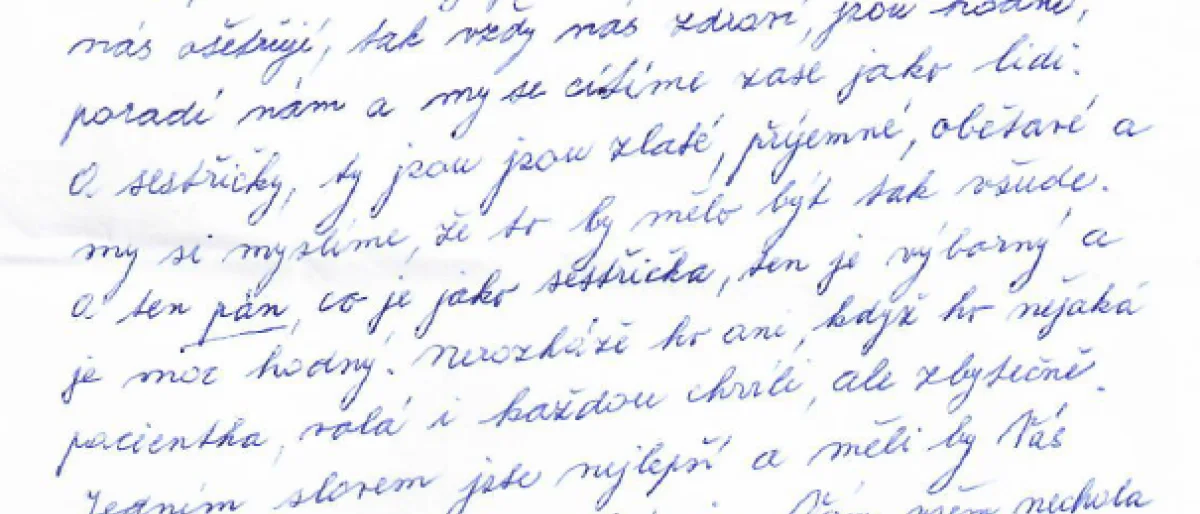 nás ošetřují, tak vždy nás zdraví, jsou hodné,
poradí nám a my se cítíme zase jako lidi.
A sestřičky, ty jsou jsou zlaté, příjemné, obětavé a
my si myslíme, že to by mělo být tak všude.
A ten pán, co je jako sestřička, ten je výborný a
je moc hodný. Nerozháže ho ani, když ho nějaká
pacientka, volá i každou chvíli, ale zbytečně.
Jedním slovem jste nejlepší a měli by Vás
Vám všem nechola